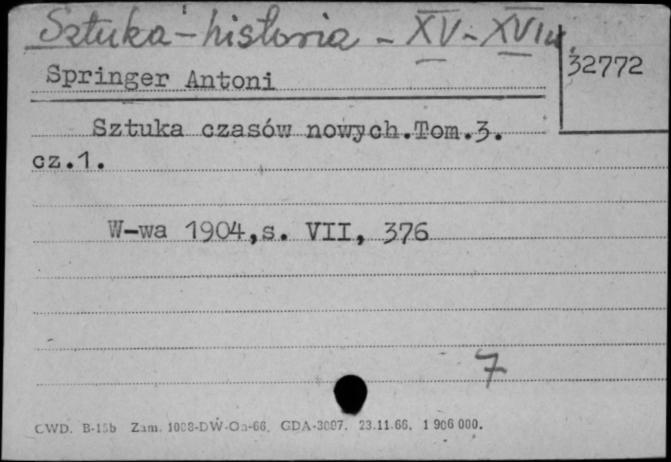 Sztuka - historia - XV - XVI w.
32772
Springer Antoni
Sztuka czasów nowych.Tom.3.
cz.1.
W-wa 1904,s. VII, 376
7
CWD. B-15b Zam. 1008-DW-Oa-66. GDA-3097. 23.11.66. 1 906 000.